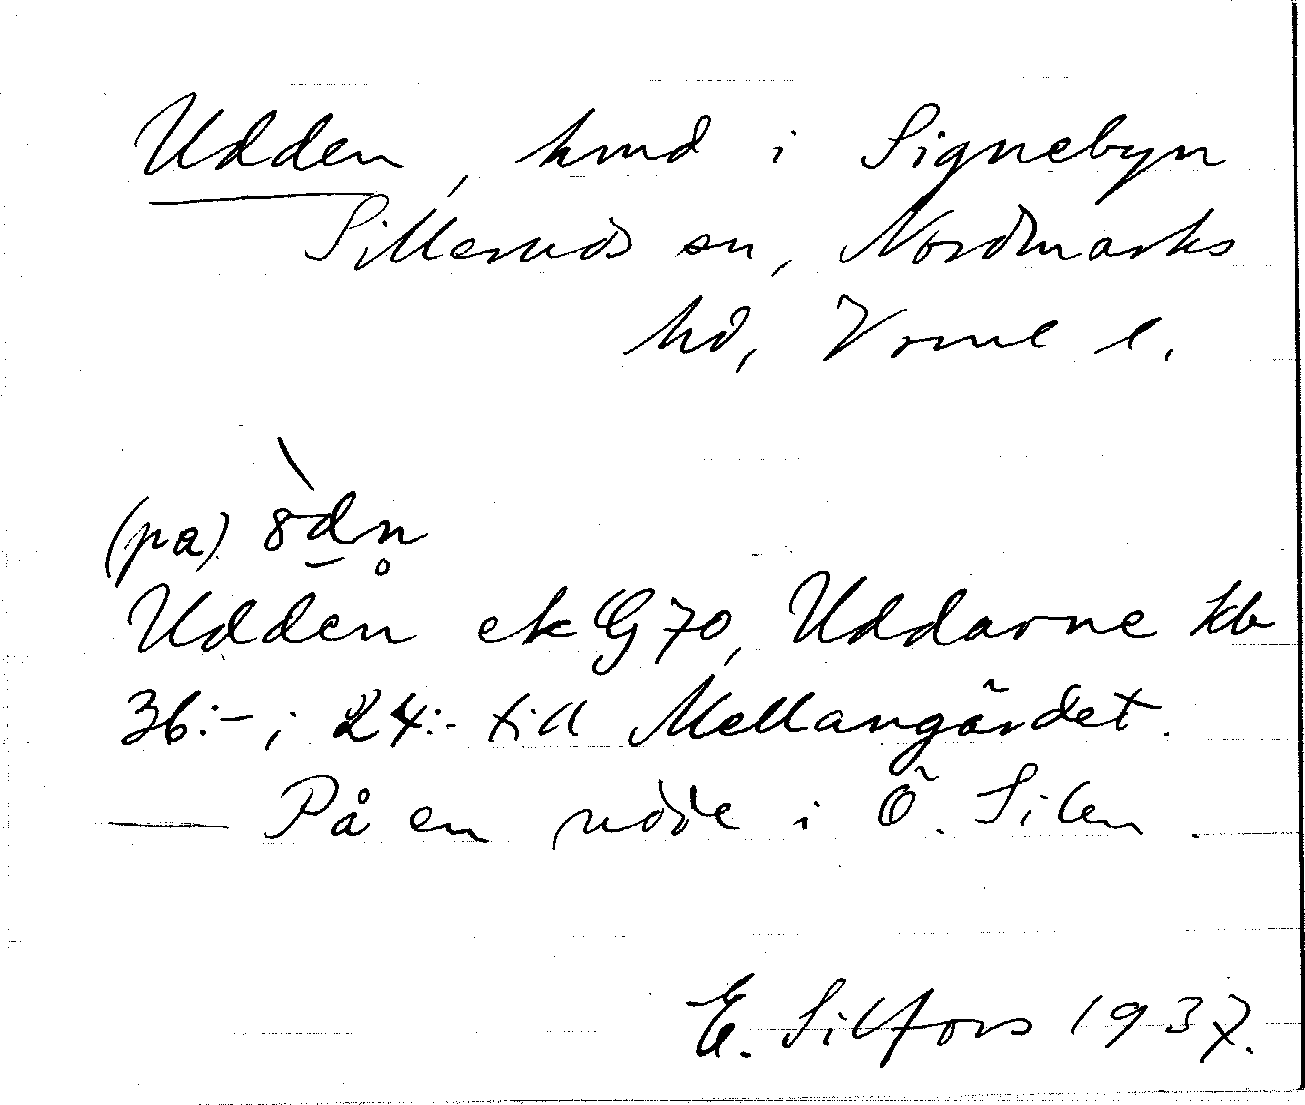 Udden, hmd i Signebyn
Silleruds sn, Nordmarks
hd, Vrml l.
(pa) 8̀d̲n̥
Udden ek G 70, Uddarne kb
36:- ; 24:- till Mellangärdet.
— På en udde i Ö. Silen.
E. Silfors 1937.